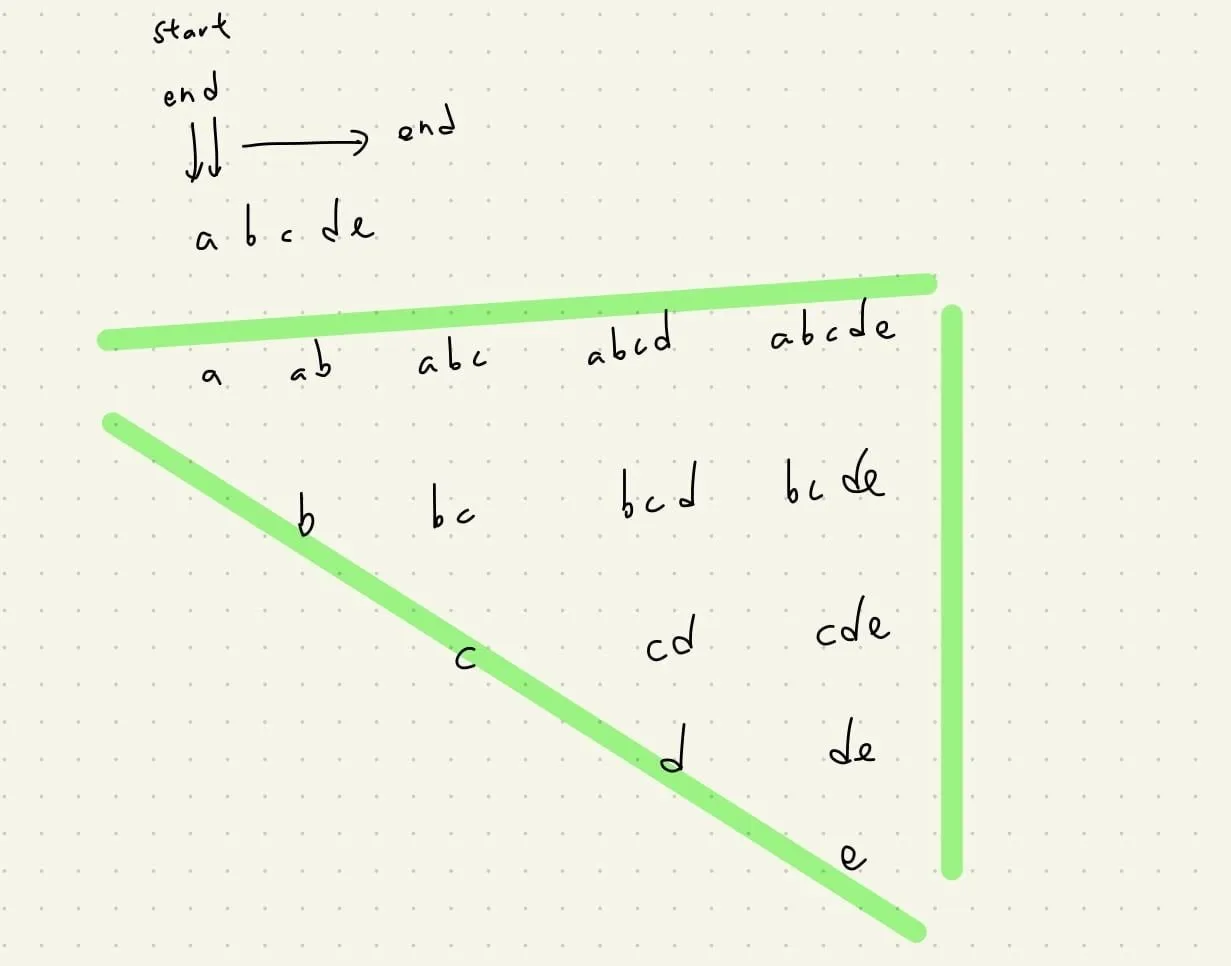 start
end
end
a b c d e
a ab abc abcd abcde
b bc bcd bcde
c cd cde
d de
e